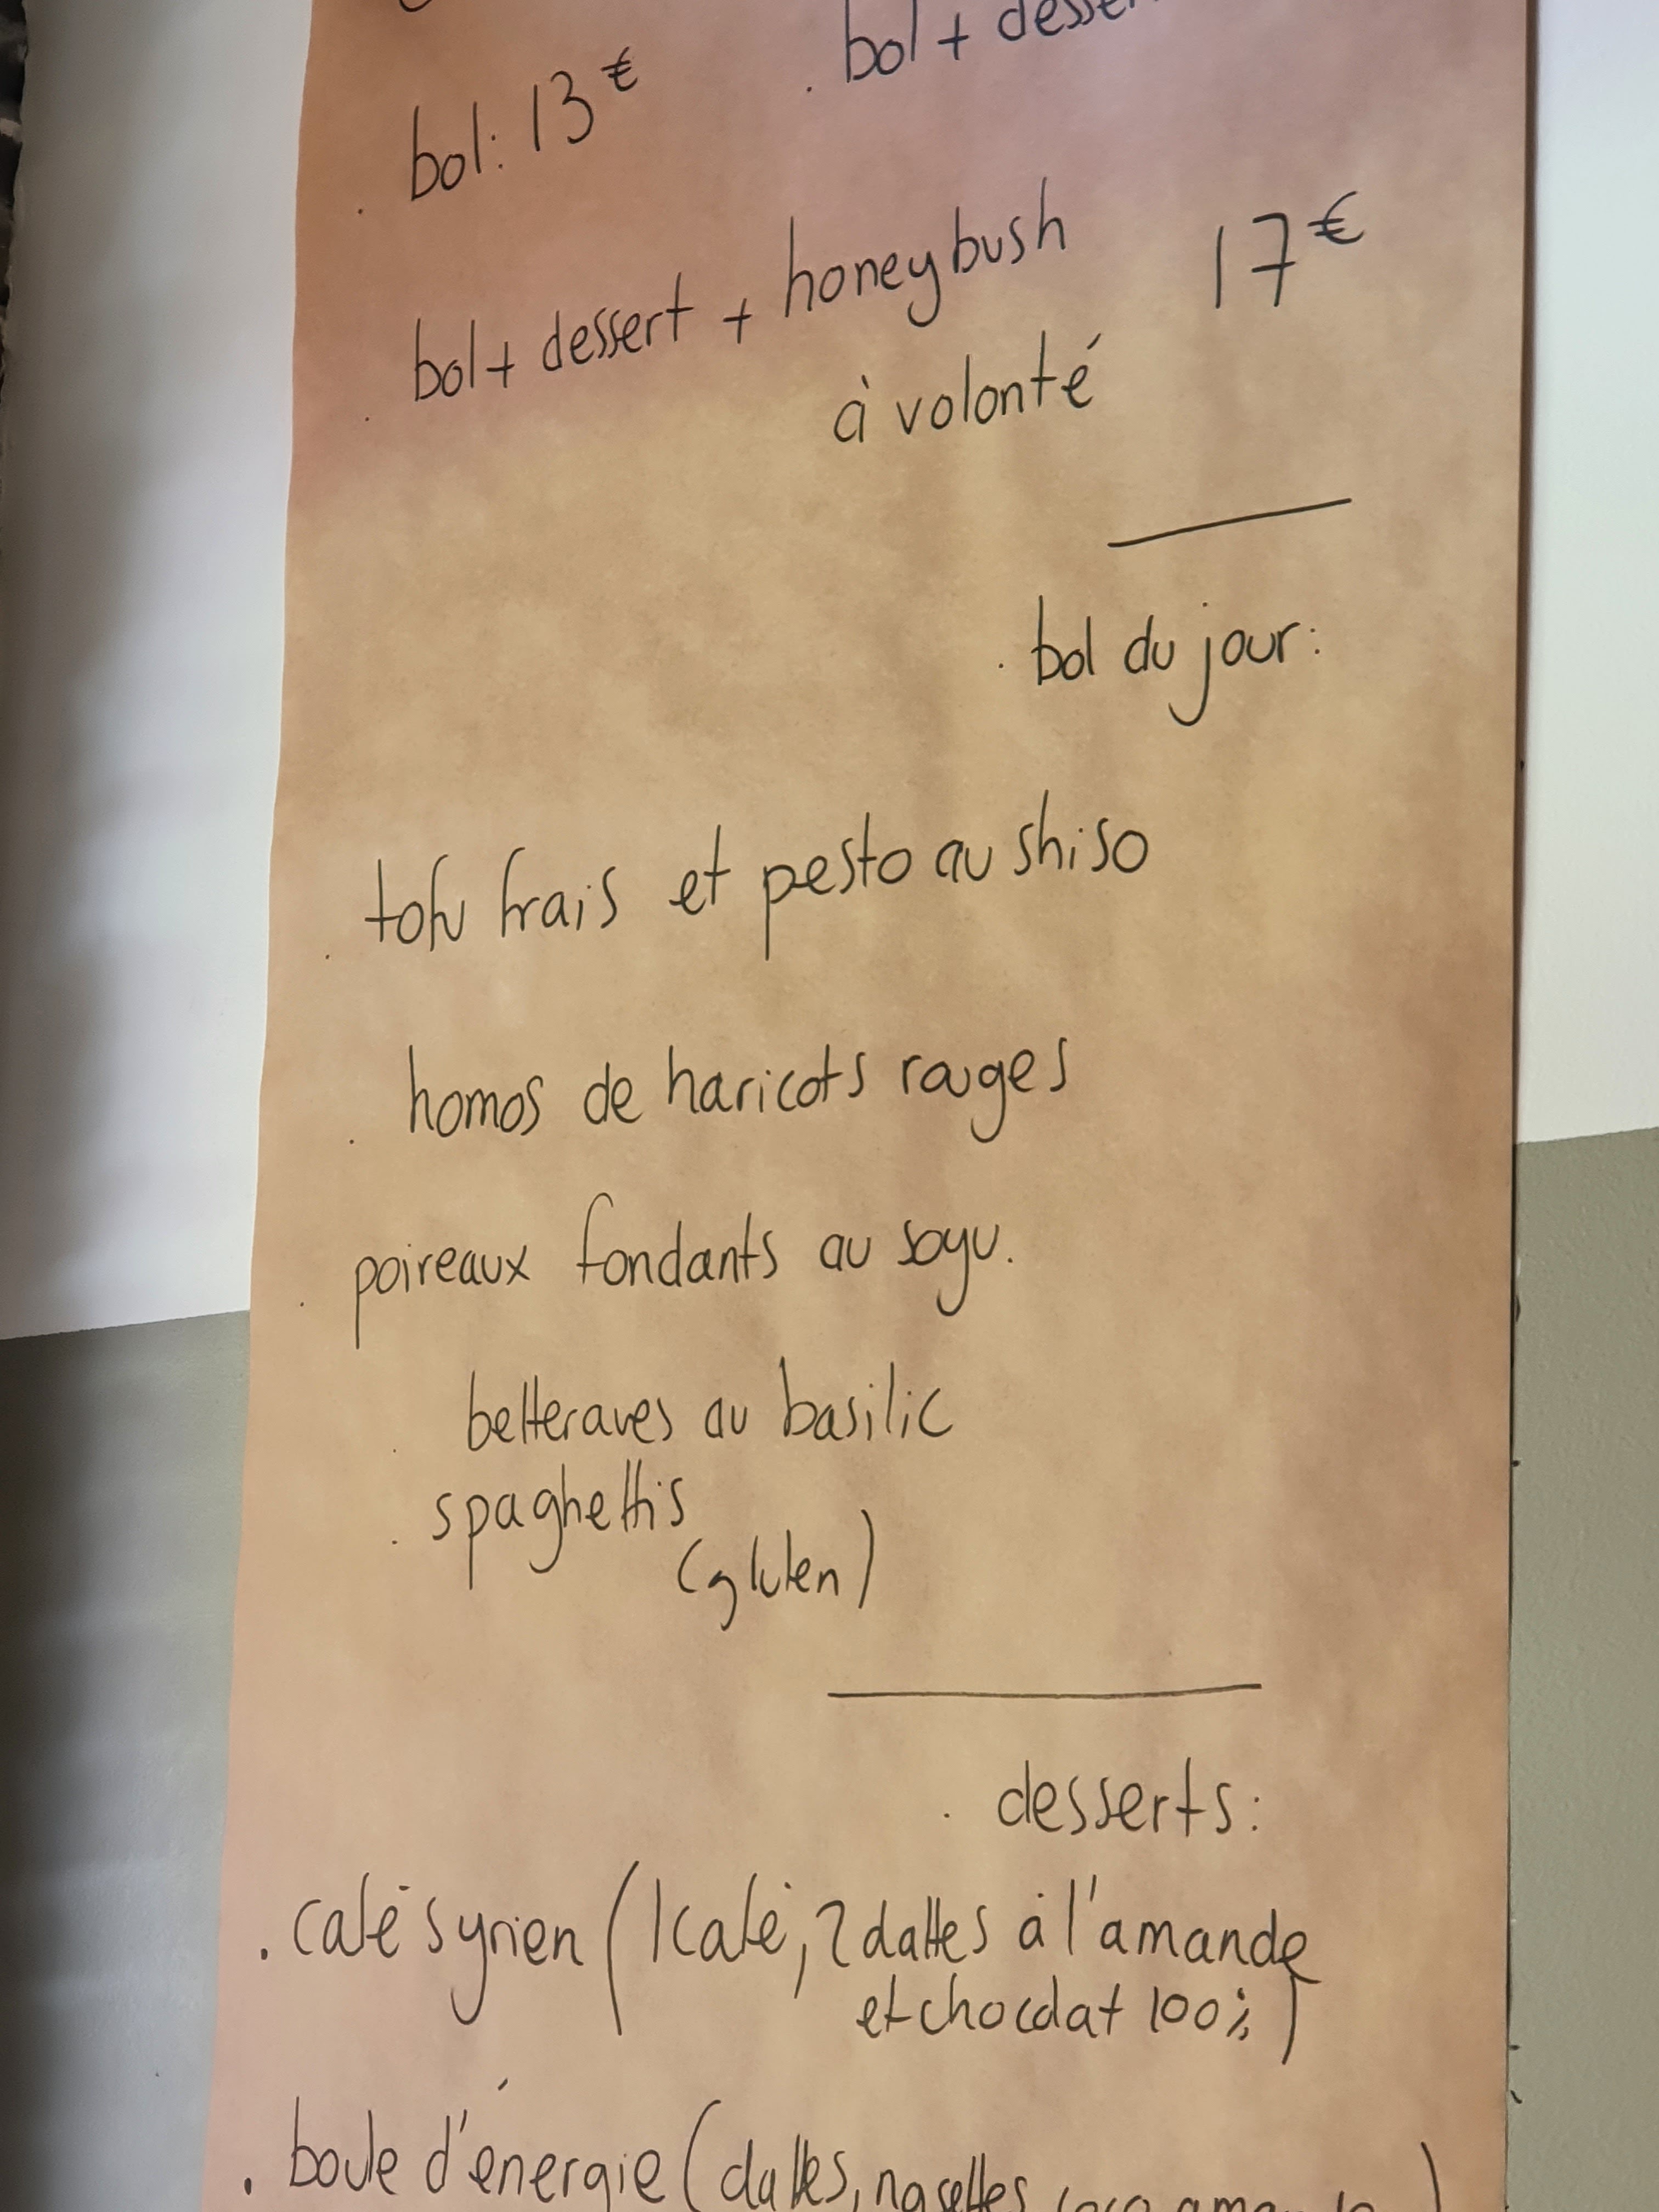 . bol + dessert
. bol: 13€
. bol + dessert + honeybush 17€
à volonté
. bol du jour:
. tofu frais et pesto au shiso
. homos de haricots rouges
. poireaux fondants au soyu.
. betteraves au basilic
. spaghettis
(gluten)
. desserts:
. café syrien (1 café, 2 dattes à l'amande
et chocolat 100%)
. boule d'énergie (dattes, noisettes, coco, amande)